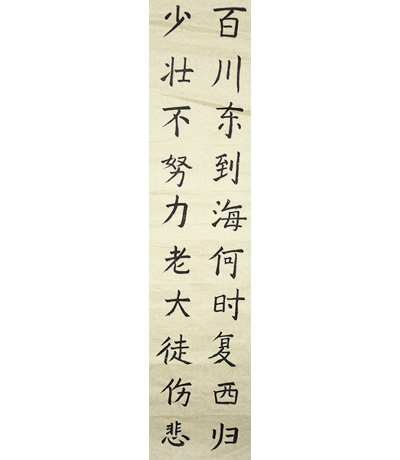 百川东到海何时复西归
少壮不努力老大徒伤悲